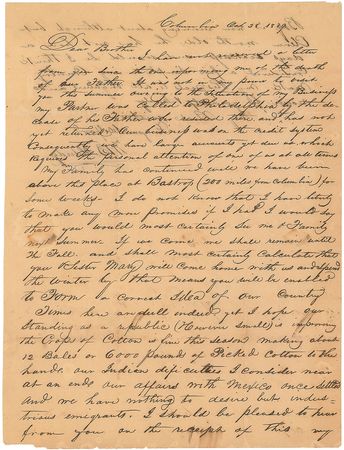 Columbia Oct 28. 1839
Dear Brother
I have not received a letter
from you since the one informing me of the death
of our Father. It was not in my power to visit
you the summer owing to the situation of my Business
my Partner was called to Philadelphia by the de-
cease of his Father who resided there and has not
yet returned. Our business was on the credit system
Consequently we have large accounts yet due us which
requires the personal attention of one of us at all times
My Family has continued well we have been
above this place at Bastrop (200 miles from Columbia) for
some weeks. I do not know that I have liberty
to make any more promises if I had I would say
that you would most certainly see me & Family
next Summer. If we come we shall remain until
the Fall. and shall most certainly Calculate that
you & Sister Mary will come home with us and spend
the winter by that means you will be enabled
to Form a correct Idea of our Country
Times here are dull indeed yet I hope our
standing as a republic (However small) is improving
the Crops of Cotton is fine this season making about
12 Bales or 6000 pound of Picked Cotton to the
hand. our Indian difficulties I consider near
at an end our affairs with Mexico once settled
and we have nothing to desire but indus-
trious emigrants. I should be pleased to hear
from you on the receipt of this my